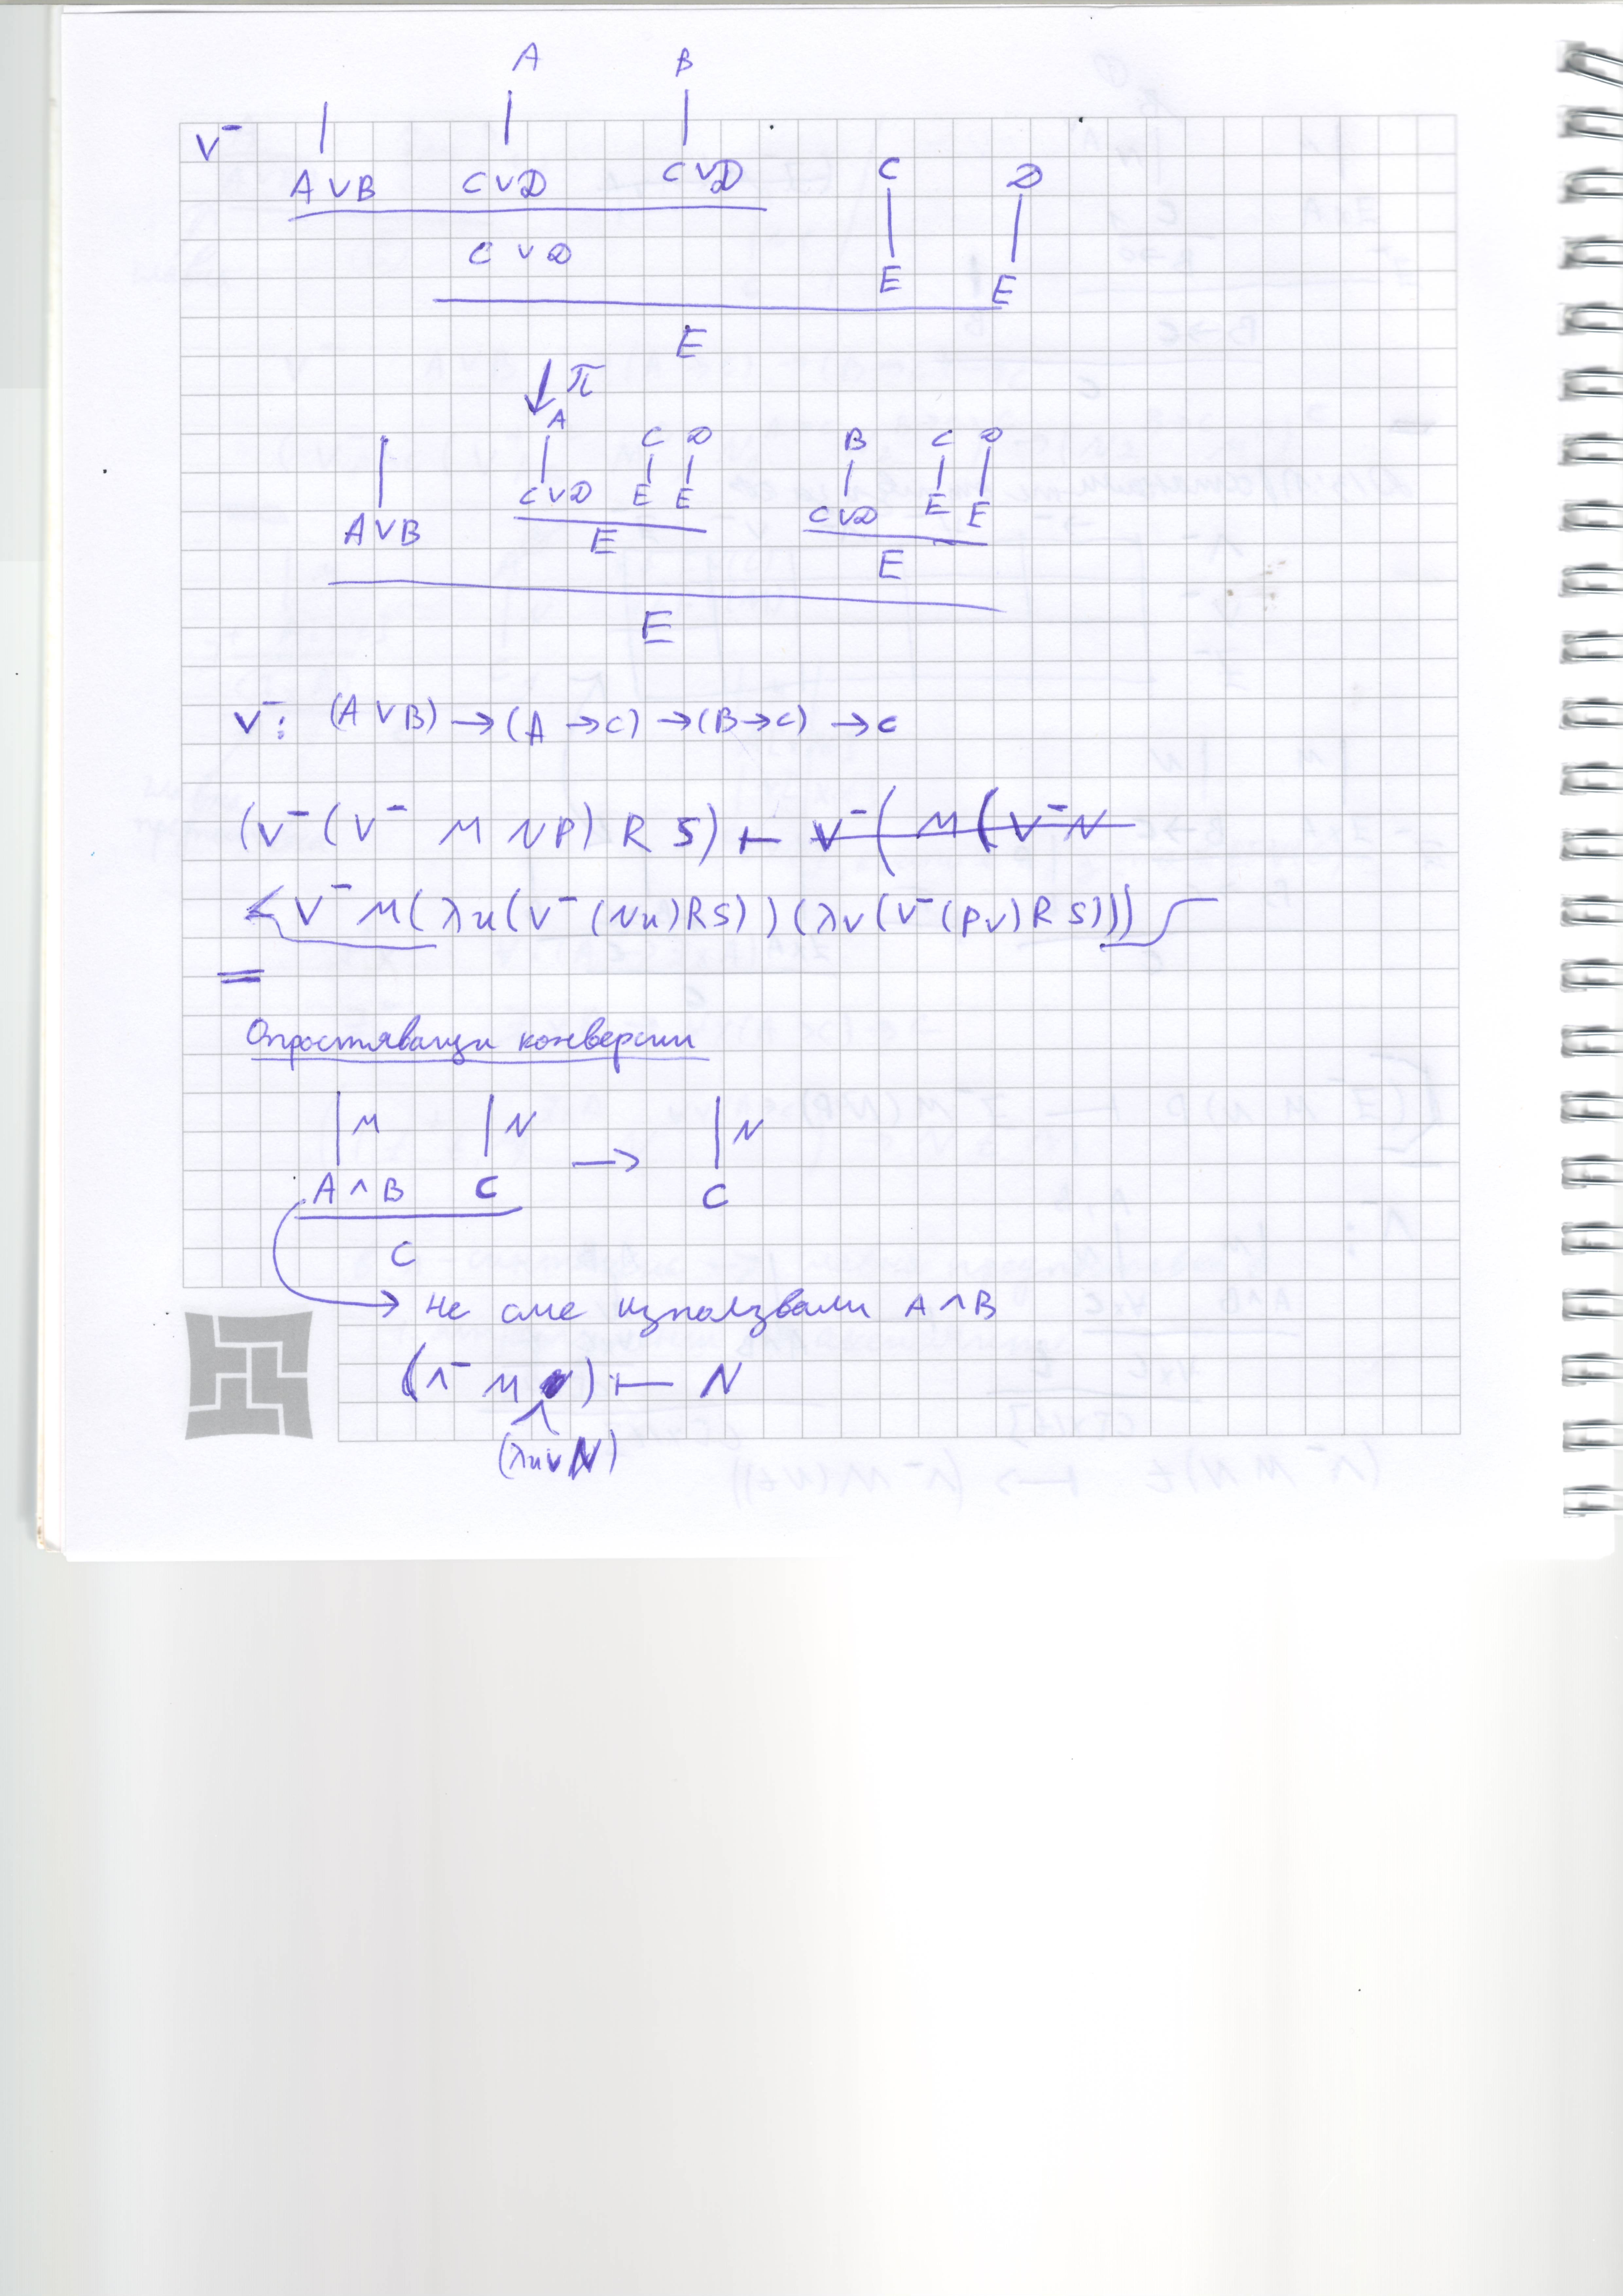 A B
∨⁻
A ∨ B C ∨ D C ∨ D C D
C ∨ D E E
E
↓ π
A C D B C D
A ∨ B C ∨ D E E C ∨ D E E
E E
E
∨⁻: (A ∨ B) → (A → C) → (B → C) → C
(∨⁻(∨⁻ M N P) R S) ⊢ ∨⁻( M (∨⁻ N
∨⁻ M (λu(∨⁻(Nu)RS))(λv(∨⁻(Pv)RS)))
=
Опростяващи конверсии
M N → N
A ∧ B C C
C
→ не сме използвали A ∧ B
(∧⁻ M ) ⊢ N
(λuvN)